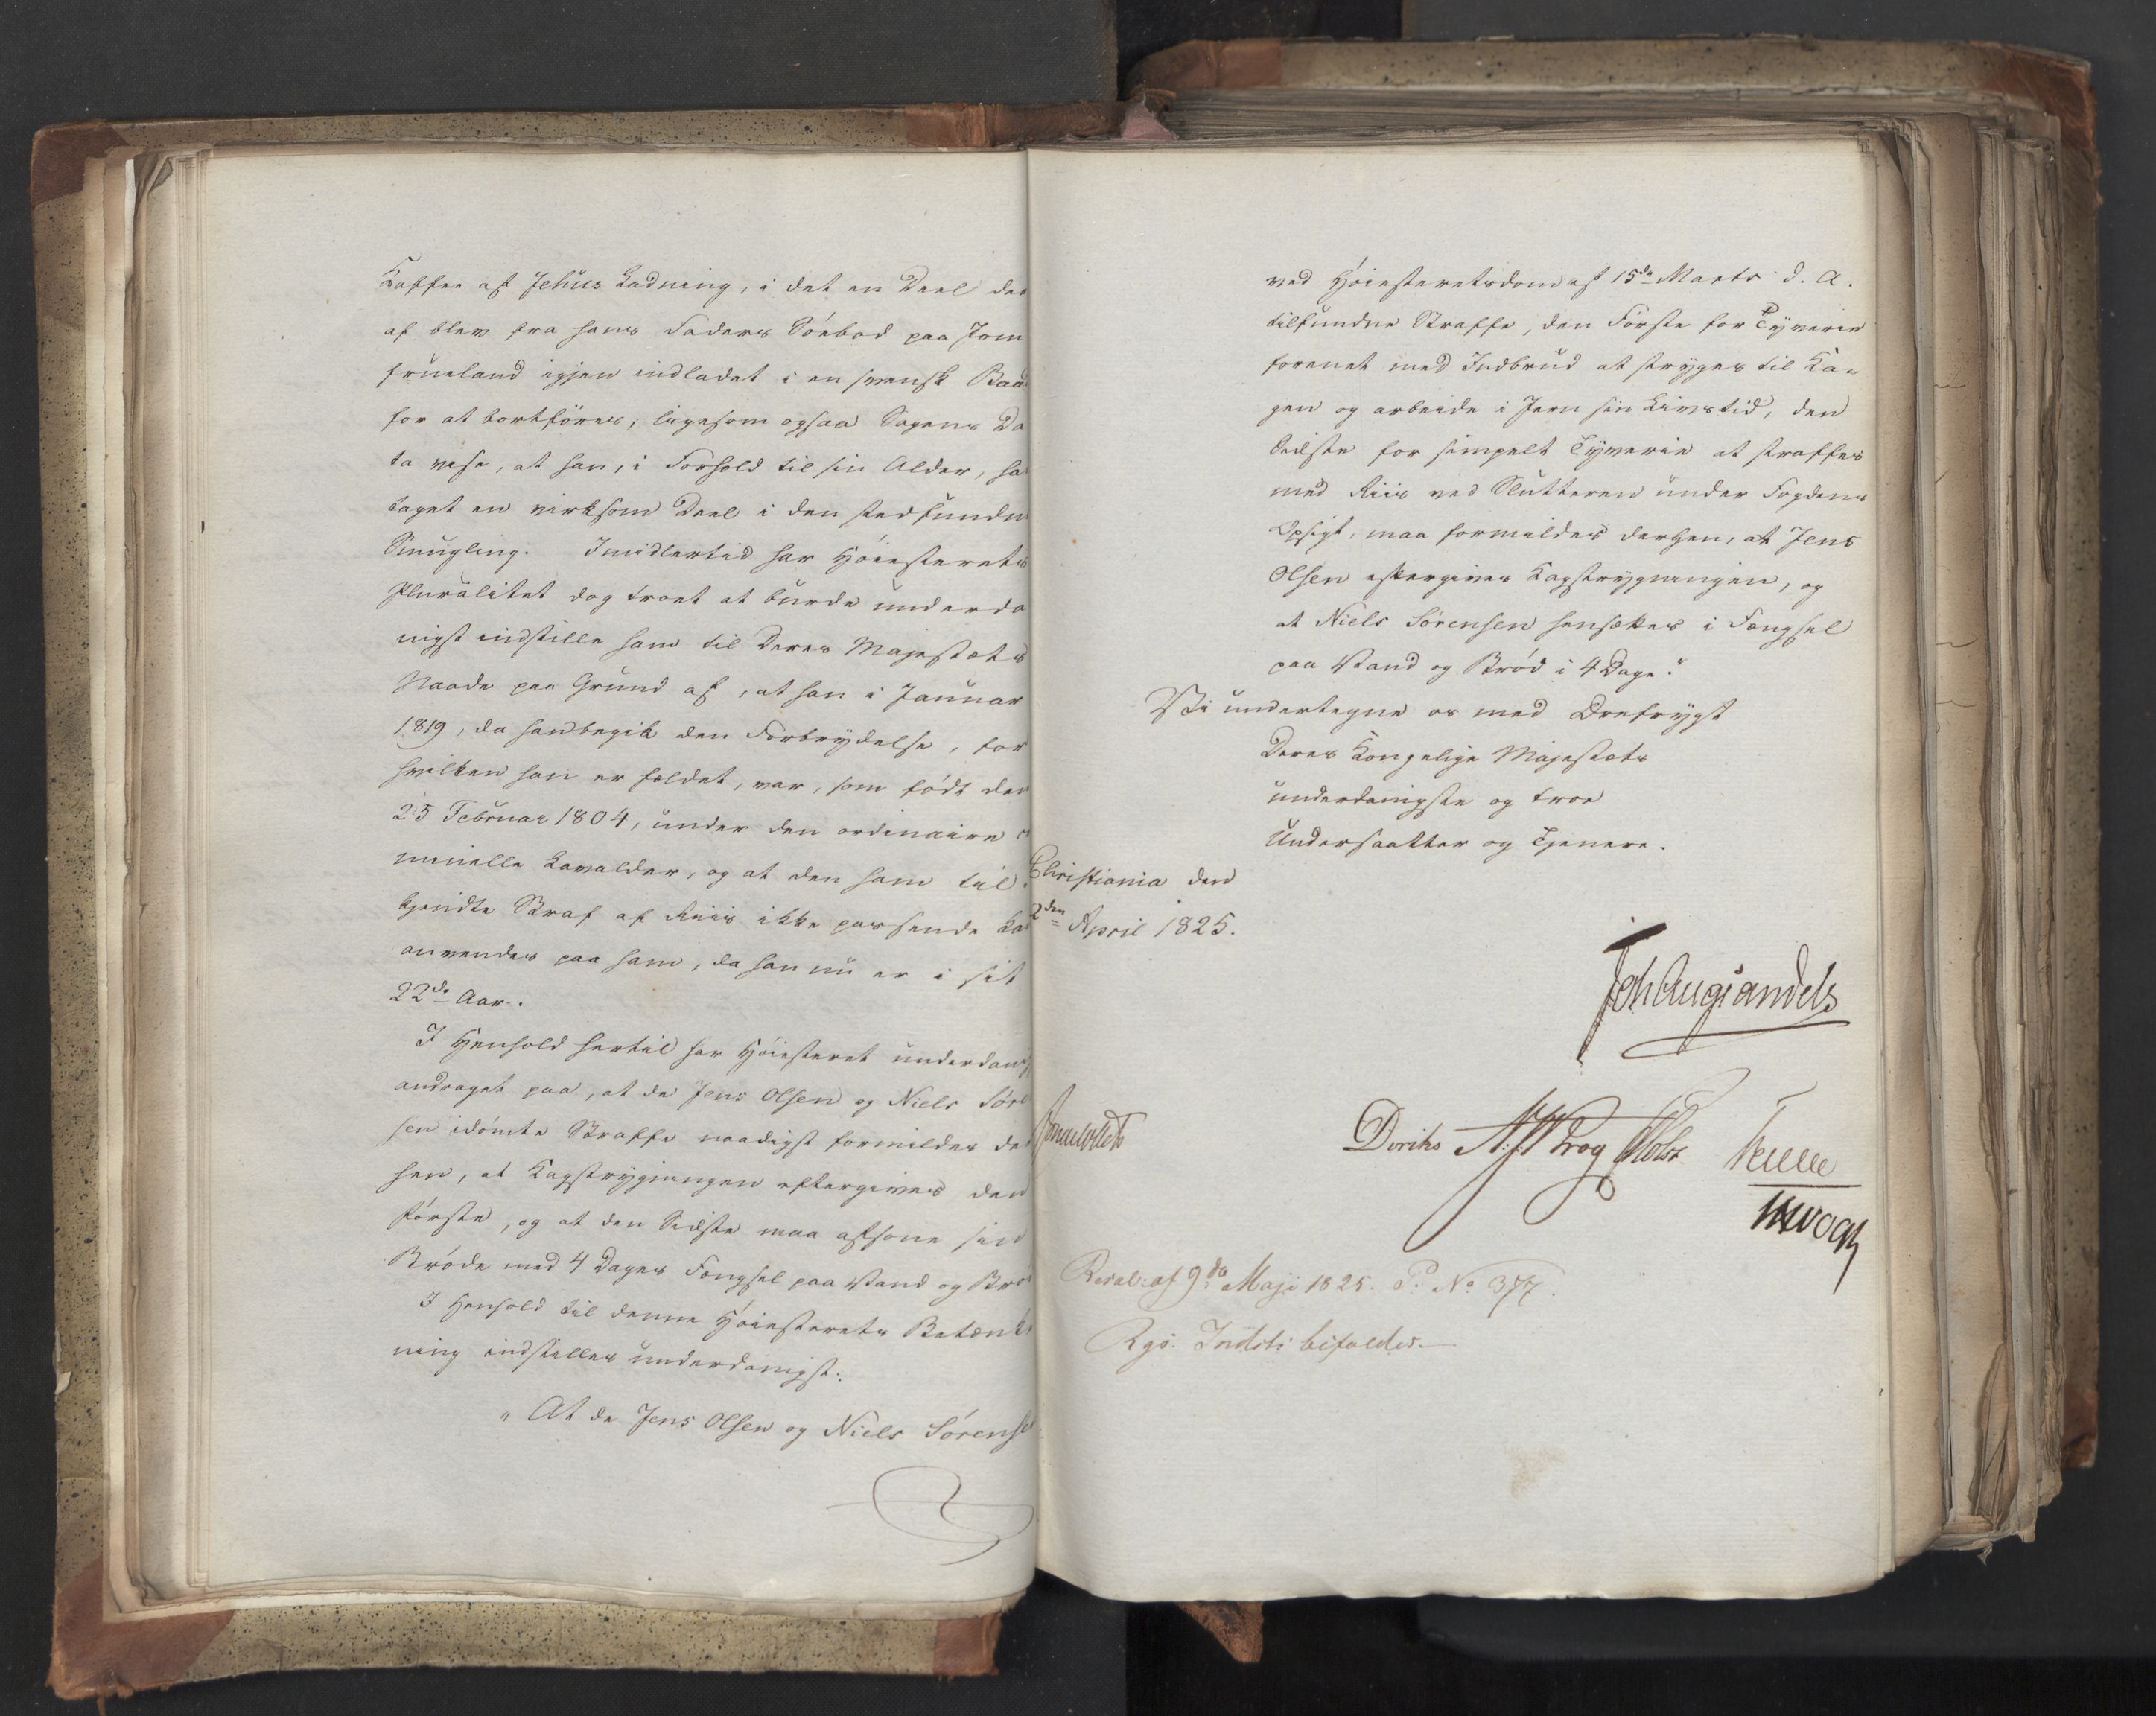 Kaffee af Jehus Ladning, i det en Deel der
af blev fra hans Faders Söebod paa Jom
frueland igjen indladet i en svensk Baad
for at bortföres, ligesom ogsaa Sagens Da
ta vise, at han, i Forhold til sin Alder, ha
taget en virksom Deel i den stedfundne
Smugling. Imidlertid har Höiesterets
Pluralitet dog troet at burde underda
nigst indstille ham til Deres Majestæts
Naade paa Grund af, at han i Januar
1819, da han begik den Forbrydelse, for
hvilken han er fældet, var, som födt den
25 Februar 1804, under den ordinaire
minelle Lavalder, og at den ham til
kjendte Straf af Riis ikke passende ka
anvendes paa ham, da han nu er i sit
22de Aar.
I Henhold hertil har Höiesteret underdan
andraget paa, at de Jens Olsen og Niels Sören
sen idömte Straffe naadigst formildes der
hen, at Kagstrygningen eftergives den
förste, og at den Sidste maa afsone sin
Bröde med 4 Dages Fængsel paa Vand og Brö
I Henhold til denne Höiesterets Betænk
ning indstilles underdanigst:
"At de Jens Olsen og Niels Sörense
ved Höiesteretsdom af 15de Marts d. A.
tilfundne Straffe, den Förste for Tyverie
forenet med Indbrud at stryges til Ka-
gen og arbeide i Jern sin Livstid, den
Sidste for simpelt Tyverie at straffes
med Riis ved Slutteren under Fogdens
Opsigt, maa formildes derhen, at Jens
Olsen eftergives Kagstrygningen, og
at Niels Sörensen hensættes i Fængsel
paa Vand og Bröd i 4 Dage."
Vi undertegne os med Ærefrygt
Deres Kongelige Majestæts
underdanigste og troe
Undersaatter og Tjenere.
Christiania den
2den April 1825.
Joh Aug Sandels
Jonas Collett
Diriks A. Krog PHolst Treschow
JHVogt
Resol: af 9de Maji 1825. P. No 377.
Rgs. Indst: bifaldes.